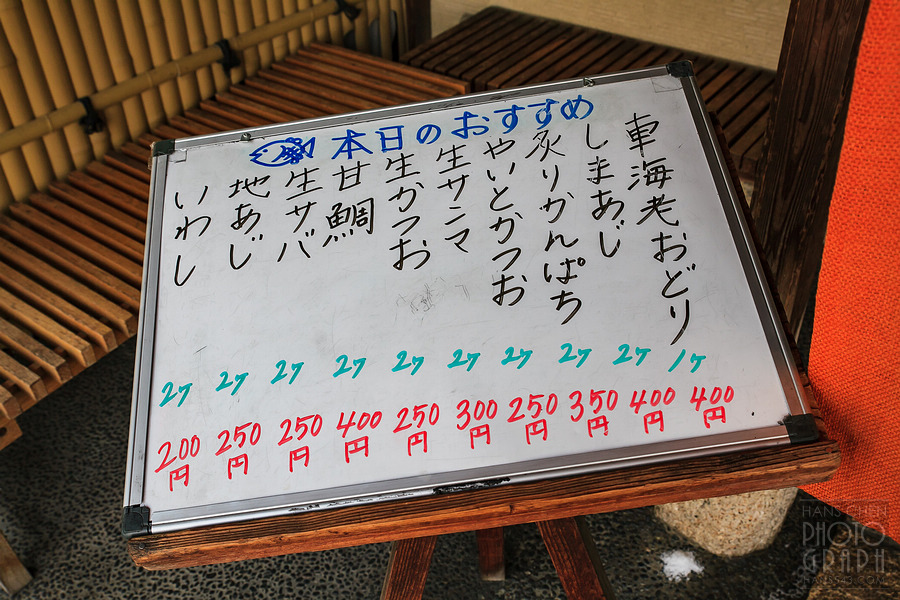 本日のおすすめ
車海老おどり 1ヶ 400円
しまあじ 2ヶ 400円
炙りかんぱち 2ヶ 350円
やいとかつお 2ヶ 250円
生サンマ 2ヶ 300円
生かつお 2ヶ 250円
甘鯛 2ヶ 400円
生サバ 2ヶ 250円
地あじ 2ヶ 250円
いわし 2ヶ 200円
HANS CHEN
PHOTO
GRAPH